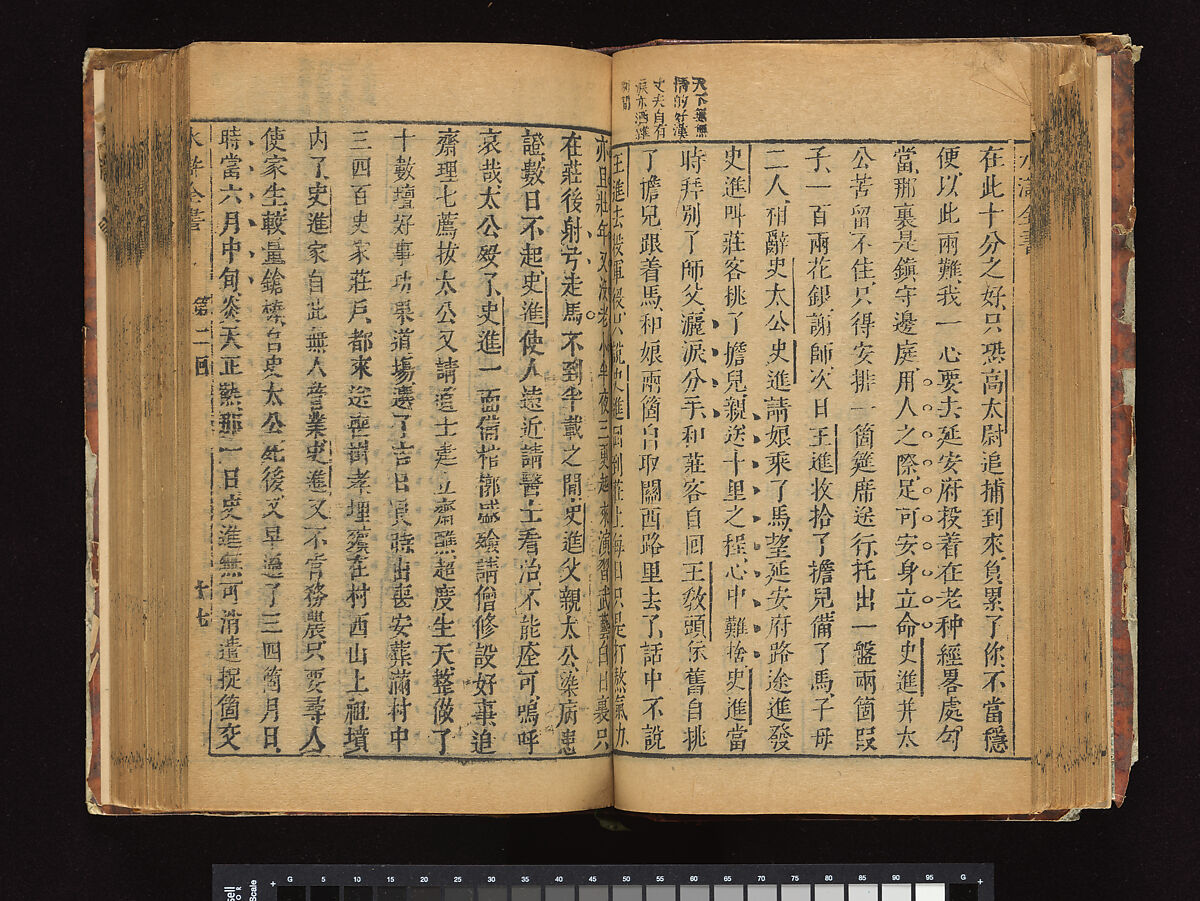 水滸全書
天下無無
情的好漢
丈夫自有
淚亦洒離
間
在此十分之好只恐高太尉追捕到來負累了你不當穩
便以此兩難我一心要去延安府投着在老种經畧處勾
當那裏是鎮守邊庭用人之際足可安身立命史進并太
公苦留不住只得安排一箇筵席送行托出一盤兩箇叚
子一百兩花銀謝師次日王進收拾了擔兒備了馬子母
二人相辭史太公史進請娘乘了馬望延安府路途進發
史進叫莊客挑了擔兒親送十里之程心中難捨史進當
時拜別了師父灑淚分手和莊客自回王敎頭依舊自挑
了擔兒跟着馬和娘兩箇自取關西路里去了話中不說
王進去投軍役只說史進回到莊上每日只是打熬氣力
亦且壯年又没老小半夜三更起來演習武藝白日裏只
在莊後射弓走馬不到半載之間史進父親太公染病患
證數日不起史進使人遠近請醫士看治不能痊可嗚呼
哀哉太公歿了史進一面備棺槨盛殮請僧修設好事追
齋理七薦拔太公又請道士建立齋醮超度生天整做了
十數壇好事功果道場選了吉日良時出喪安葬滿村中
三四百史家莊戶都來送喪掛孝埋殯在村西山上祖墳
内了史進家自此無人管業史進又不肯務農只要尋人
使家生較量鎗棒自史太公死後又早過了三四箇月日
時當六月中旬炎天正熱那一日史進無可消遣捉箇交
水滸全書 第二回 十七
5 10 15 20 25 30 35 40 45 50 55 60 65 70 75 80 85 90 95
Scale